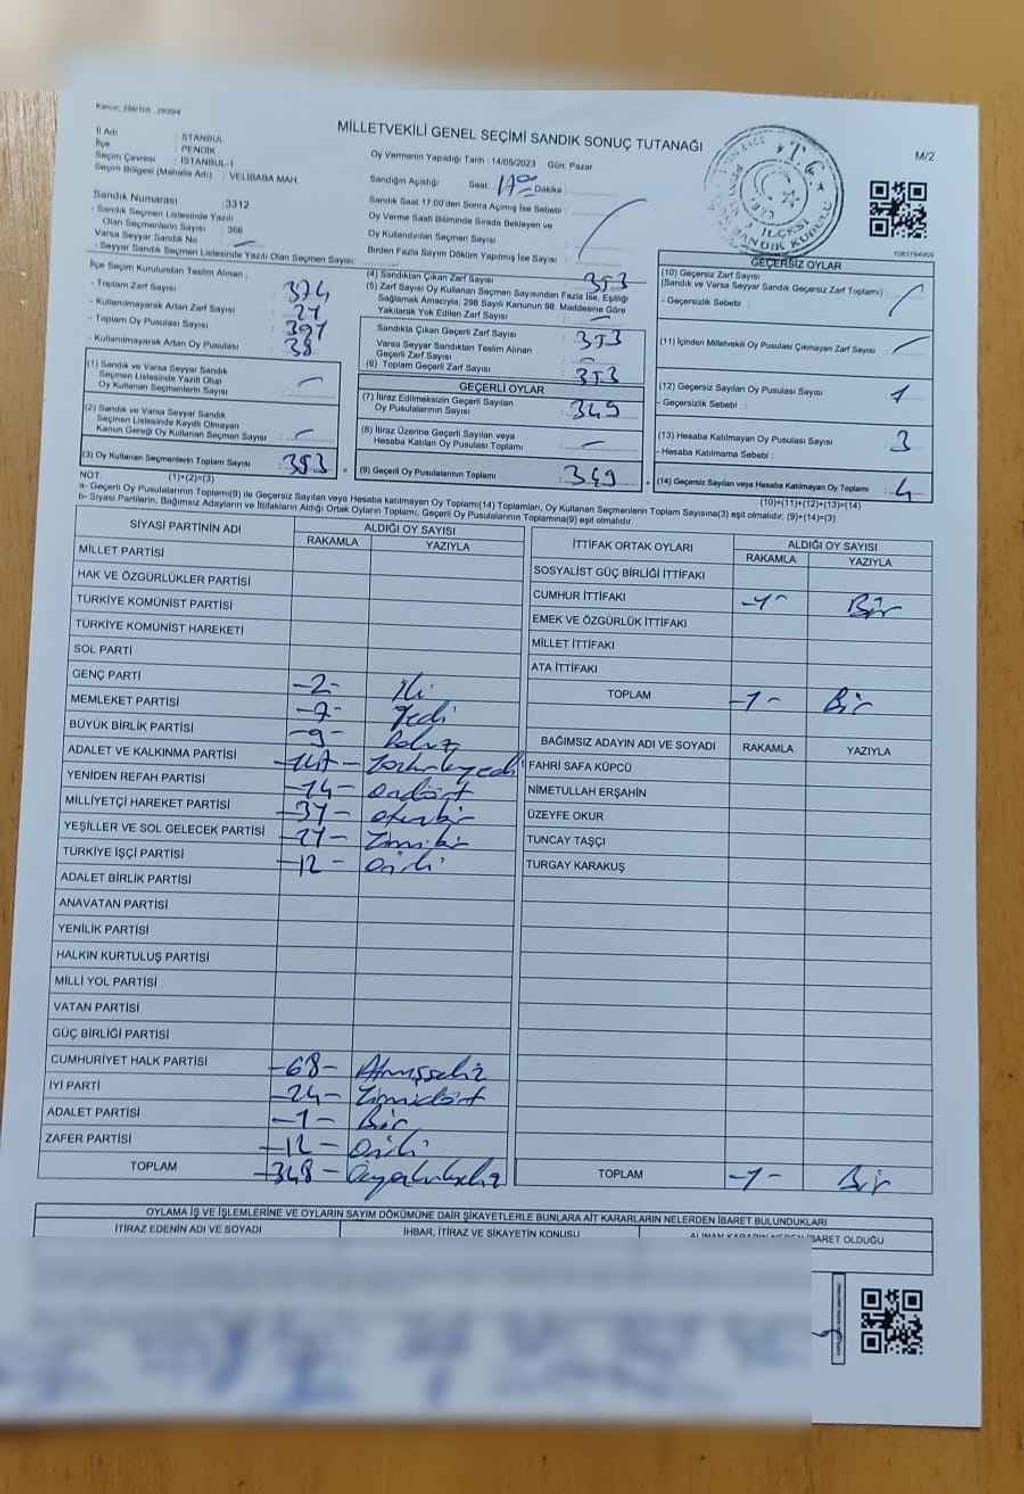 MİLLETVEKİLİ GENEL SEÇİMİ SANDIK SONUÇ TUTANAĞI
M/2
İl Adı : İSTANBUL
İlçe : PENDİK
Seçim Çevresi : İSTANBUL-1
Seçim Bölgesi (Mahalle Adı) : VELİBABA MAH.
Sandık Numarası : 3312
- Sandık Seçmen Listesinde Yazılı
Olan Seçmenlerin Sayısı : 366
Varsa Seyyar Sandık No
- Seyyar Sandık Seçmen Listesinde Yazılı Olan Seçmen Sayısı:
Oy Vermenin Yapıldığı Tarih : 14/05/2023 Gün: Pazar
Sandığın Açıldığı Saat: 17 00 Dakika
Sandık Saat 17:00'den Sonra Açılmış İse Sebebi :
Oy Verme Saati Bitiminde Sırada Bekleyen ve
Oy Kullandırılan Seçmen Sayısı :
Birden Fazla Sayım Döküm Yapılmış İse Sayısı :
İlçe Seçim Kurulundan Teslim Alınan :
- Toplam Zarf Sayısı : 374
- Kullanılmayarak Artan Zarf Sayısı : 21
- Toplam Oy Pusulası Sayısı : 391
- Kullanılmayarak Artan Oy Pusulası : 38
(1) Sandık ve Varsa Seyyar Sandık
Seçmen Listesinde Yazılı Olup
Oy Kullanan Seçmenlerin Sayısı :
(2) Sandık ve Varsa Seyyar Sandık
Seçmen Listesinde Kayıtlı Olmayan
Kanun Gereği Oy Kullanan Seçmen Sayısı :
(3) Oy Kullanan Seçmenlerin Toplam Sayısı : 353
(1)+(2)=(3)
(4) Sandıktan Çıkan Zarf Sayısı : 353
(5) Zarf Sayısı Oy Kullanan Seçmen Sayısından Fazla İse, Eşitliği
Sağlamak Amacıyla; 298 Sayılı Kanunun 98. Maddesine Göre
Yakılarak Yok Edilen Zarf Sayısı :
Sandıkta Çıkan Geçerli Zarf Sayısı : 353
Varsa Seyyar Sandıktan Teslim Alınan
Geçerli Zarf Sayısı :
(6) Toplam Geçerli Zarf Sayısı : 353
GEÇERLİ OYLAR
(7) İtiraz Edilmeksizin Geçerli Sayılan
Oy Pusulalarının Sayısı : 349
(8) İtiraz Üzerine Geçerli Sayılan veya
Hesaba Katılan Oy Pusulası Toplamı :
(9) Geçerli Oy Pusulalarının Toplamı : 349
GEÇERSİZ OYLAR
(10) Geçersiz Zarf Sayısı
(Sandık ve Varsa Seyyar Sandık Geçersiz Zarf Toplamı)
- Geçersizlik Sebebi :
(11) İçinden Milletvekili Oy Pusulası Çıkmayan Zarf Sayısı :
(12) Geçersiz Sayılan Oy Pusulası Sayısı : 1
- Geçersizlik Sebebi :
(13) Hesaba Katılmayan Oy Pusulası Sayısı : 3
- Hesaba Katılmama Sebebi :
(14) Geçersiz Sayılan veya Hesaba Katılmayan Oy Toplamı : 4
(10)+(11)+(12)+(13)=(14)
NOT:
a- Geçerli Oy Pusulalarının Toplamı(9) ile Geçersiz Sayılan veya Hesaba katılmayan Oy Toplamı(14) Toplamları, Oy Kullanan Seçmenlerin Toplam Sayısına(3) eşit olmalıdır. (9)+(14)=(3)
b- Siyasi Partilerin, Bağımsız Adayların ve İttifakların Aldığı Ortak Oyların Toplamı, Geçerli Oy Pusulalarının Toplamına(9) eşit olmalıdır.
SİYASİ PARTİNİN ADI ALDIĞI OY SAYISI
RAKAMLA YAZIYLA
MİLLET PARTİSİ
HAK VE ÖZGÜRLÜKLER PARTİSİ
TÜRKİYE KOMÜNİST PARTİSİ
TÜRKİYE KOMÜNİST HAREKETİ
SOL PARTİ
GENÇ PARTİ -2- iki
MEMLEKET PARTİSİ -7- Yedi
BÜYÜK BİRLİK PARTİSİ -9- Dokuz
ADALET VE KALKINMA PARTİSİ
YENİDEN REFAH PARTİSİ -14- ondört
MİLLİYETÇİ HAREKET PARTİSİ -31- otuzbir
YEŞİLLER VE SOL GELECEK PARTİSİ -21- Yirmibir
TÜRKİYE İŞÇİ PARTİSİ -12- oniki
ADALET BİRLİK PARTİSİ
ANAVATAN PARTİSİ
YENİLİK PARTİSİ
HALKIN KURTULUŞ PARTİSİ
MİLLİ YOL PARTİSİ
VATAN PARTİSİ
GÜÇ BİRLİĞİ PARTİSİ
CUMHURİYET HALK PARTİSİ -68- Atmışsekiz
İYİ PARTİ -24- Yirmidört
ADALET PARTİSİ -1- Bir
ZAFER PARTİSİ -12- oniki
TOPLAM -348- Üçyüzkırksekiz
İTTİFAK ORTAK OYLARI ALDIĞI OY SAYISI
RAKAMLA YAZIYLA
SOSYALİST GÜÇ BİRLİĞİ İTTİFAKI
CUMHUR İTTİFAKI -1- Bir
EMEK VE ÖZGÜRLÜK İTTİFAKI
MİLLET İTTİFAKI
ATA İTTİFAKI
TOPLAM -1- Bir
BAĞIMSIZ ADAYIN ADI VE SOYADI RAKAMLA YAZIYLA
FAHRİ SAFA KÜPCÜ
NİMETULLAH ERŞAHİN
ÜZEYFE OKUR
TUNCAY TAŞÇI
TURGAY KARAKUŞ
TOPLAM -1- Bir
OYLAMA İŞ VE İŞLEMLERİNE VE OYLARIN SAYIM DÖKÜMÜNE DAİR ŞİKAYETLERLE BUNLARA AİT KARARLARIN NELERDEN İBARET BULUNDUKLARI
İTİRAZ EDENİN ADI VE SOYADI
İHBAR, İTİRAZ VE ŞİKAYETİN KONUSU